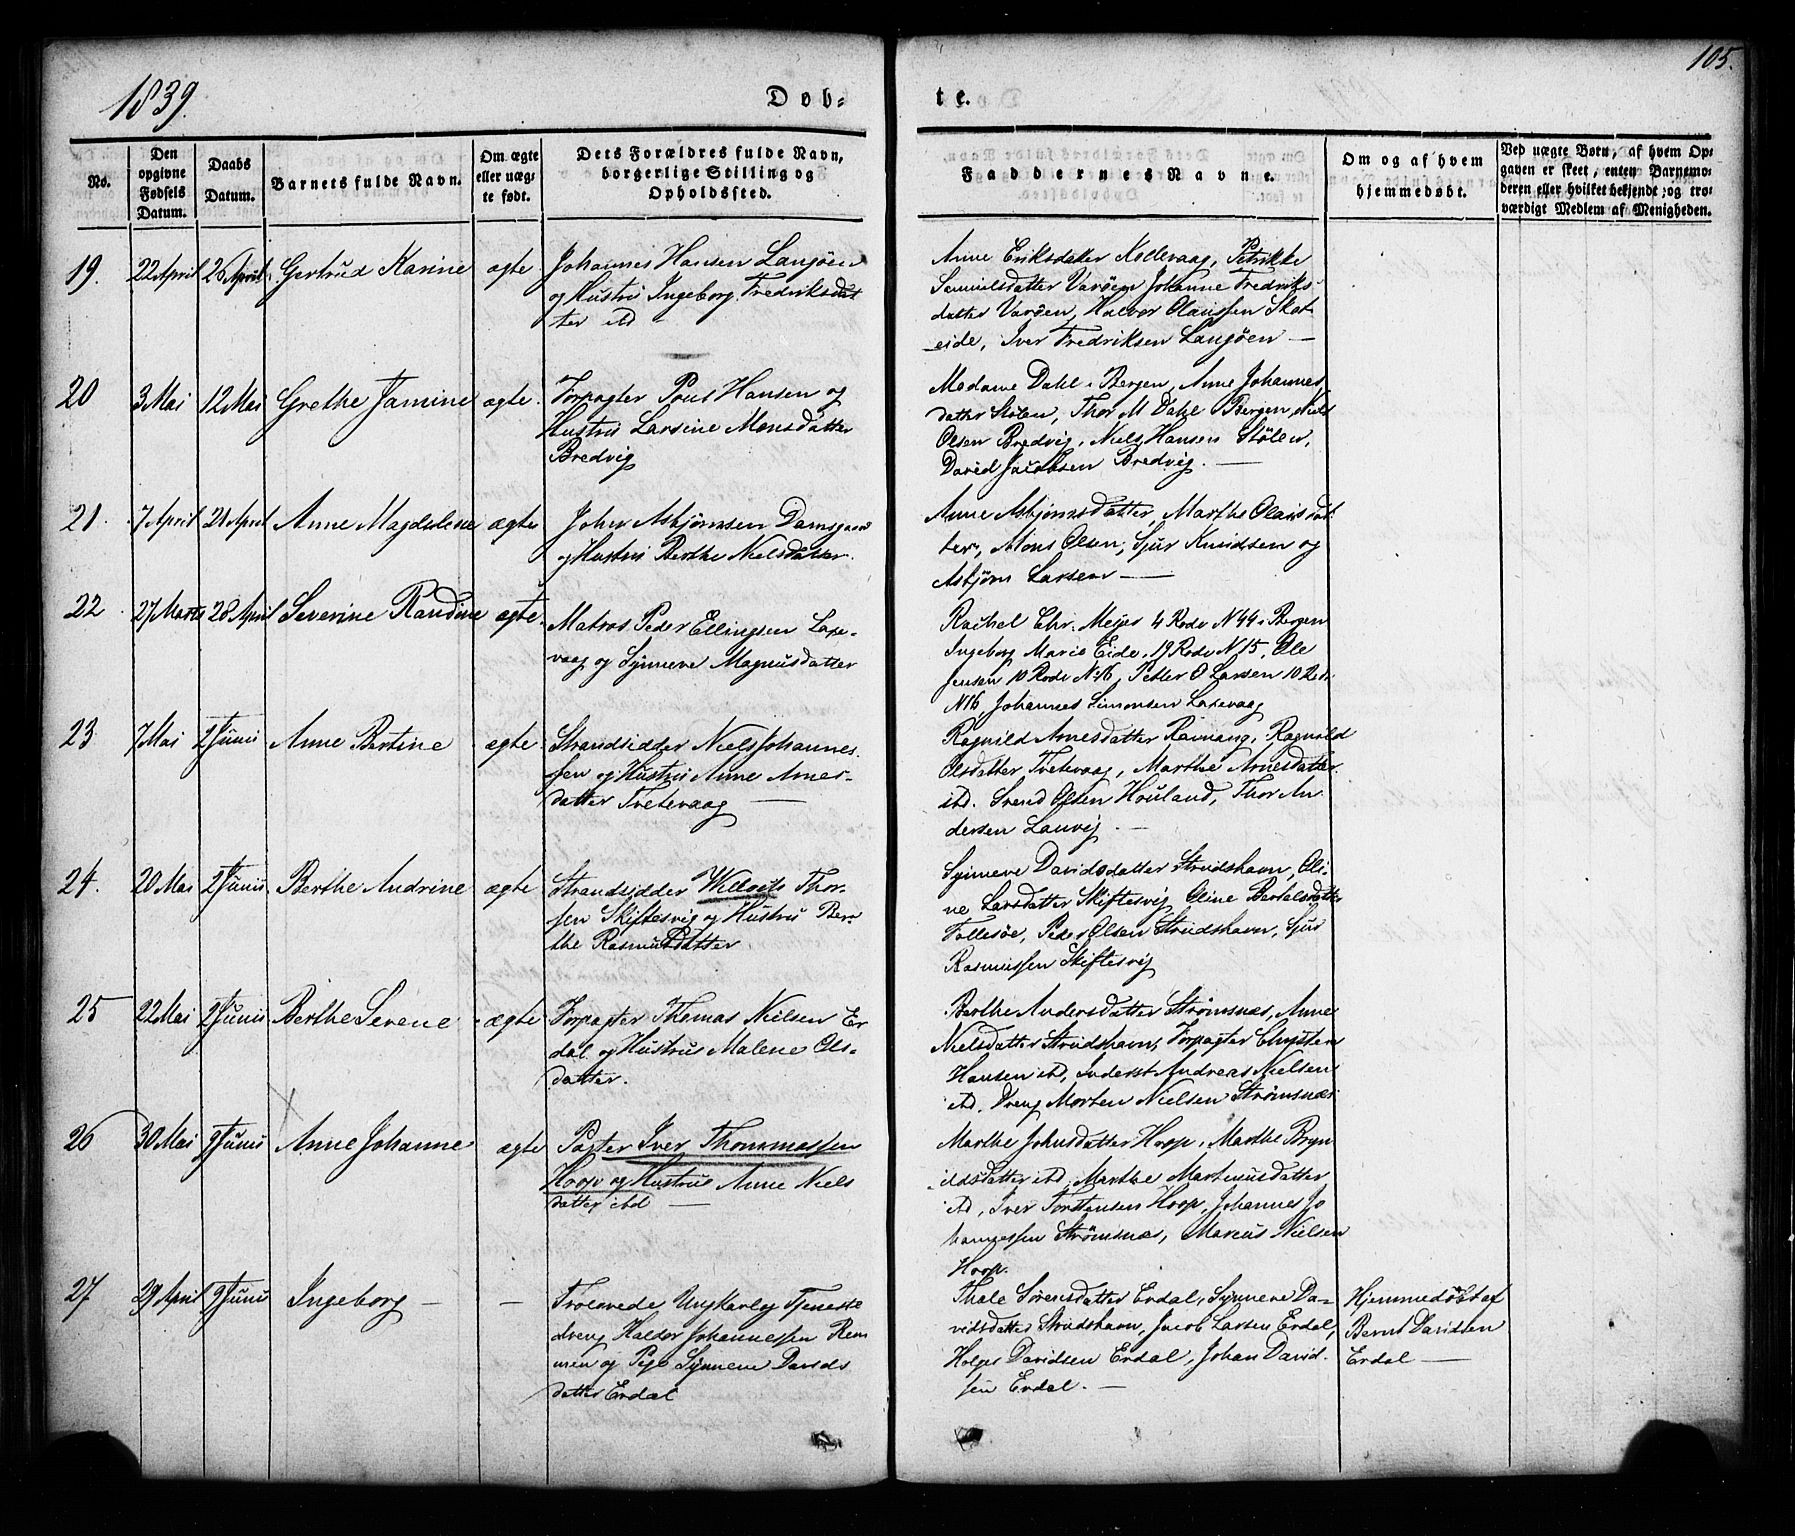 1839.
Døb-
te.
105.
No.
Den opgivne Fødsels Datum.
Daabs Datum.
Barnets fulde Navn.
Om ægte eller uægte født.
Dets Forældres fulde Navn, borgerlige Stilling og Opholdssted.
Faddernes Navne.
Om og af hvem hjemmedøbt.
Ved uægte Børn, af hvem Opgaven er skeet, enten Barnemoderen eller hvilket bekjendt og troværdigt Medlem af Menigheden.
19. 22 April 26 April Gertrud Karine ægte Johannes Hansen Langøen
og Hustru Ingeborg Fredriksdat
ter ibd
Anne Eriksdatter Kollevaag, Petrikke
Samuelsdatter Varøen Johanne Fredriks-
datter Varøen, Halvor Olaussen Skot
eide, Iver Fredriksen Langøen —
20 3 Mai 12 Mai Grethe Jamine ægte. Forpagter Poul Hansen og
Hustru Larsine Monsdatter
Bredvig
Madame Dahl i Bergen, Anne Johannes
datter Stølen, Thor M Dahl Bergen, Niels
Olsen Bredvig, Niels Hansen Stølen,
David Jacobsen Bredvig. —
21. 7 April 21 April Anne Magdalene ægte John Asbjørnsen Damsgaard
og Hustru Berthe Nielsdatter.
Anne Asbjørnsdatter, Marthe Olausdat
ter, Mons Olsen, Sjur Knudsen og
Asbjørn Larsen —
22. 27 Marts 28 April Severine Randine ægte. Matros Peder Ellingsen Laxe-
vaag og Synneve Magnusdatter
Rachel Chr. Meyer 4 Rode N 44 i Bergen
Ingeborg Marie Eide, 19 Rode N 15, Ole
Jensen 10 Rode No 16, Petter O Larsen 10 Rode
N 16, Johannes Simonsen Laxevaag
23 7 Mai 2 Junii Anne Bertine ægte Strandsidder Niels Johannes
sen og Hustru Anne Arnes-
datter Tvetevaag —
Ragnild Arnesdatter Ravnang, Ragnild
Olsdatter Tvetevaag, Marthe Arnesdatter
ibd. Svend Olsen Houland, Thor An
dersen Lauvig. —
24. 20 Mai 2 Junii Berthe Andrine ægte Strandsidder Willads Thor-
sen Skiftesvig og Hustru Ber
the Rasmusdatter.
Synneve Davidsdatter Strudshavn, Oli-
ne Larsdatter Skiftesvig Oline Bertelsdatter
Follesøe, Peder Olsen Strudshavn, Sjur
Rasmussen Skiftesvig
25 22 Mai 2 Junii Berthe Serene ægte Forpagter Thomas Nielsen Er
dal og Hustru Malene Ols-
datter.
Berthe Andersdatter Strømsnæs, Anne
Nielsdatter Strudshavn, Forpagter Chrysten
Hansen ibd, Inderst Andreas Nielsen
ibd. Dreng Morten Nielsen Strømsnæs
26 30 Mai 9 Junii Anne Johanne ægte Pagter Iver Thommassen
Hoop og Hustrue Anne Niels
datter ibd —
Marthe Johnsdatter Hoop, Marthe Bryn
ildsdatter ibd, Marthe Martinusdatter
ibd, Iver Torstensen Hoop, Johannes Jo
hannessen Strømsnæs, Marcus Nielsen
Hoop.
27 29 April 9 Junii Ingeborg — — Trolovede Ungkarl og Tjeneste
dreng Haldor Johannessen Rem
men og Pige Synneve Davids
datter Erdal
Thale Sørensdatter Erdal, Synneve Da-
vidsdatter Strudshavn, Jacob Larsen Erdal,
Holger Davidsen Erdal, Johan David-
sen Erdal. —
Hjemmedøbt af
Bernt Davidsen
Erdal —